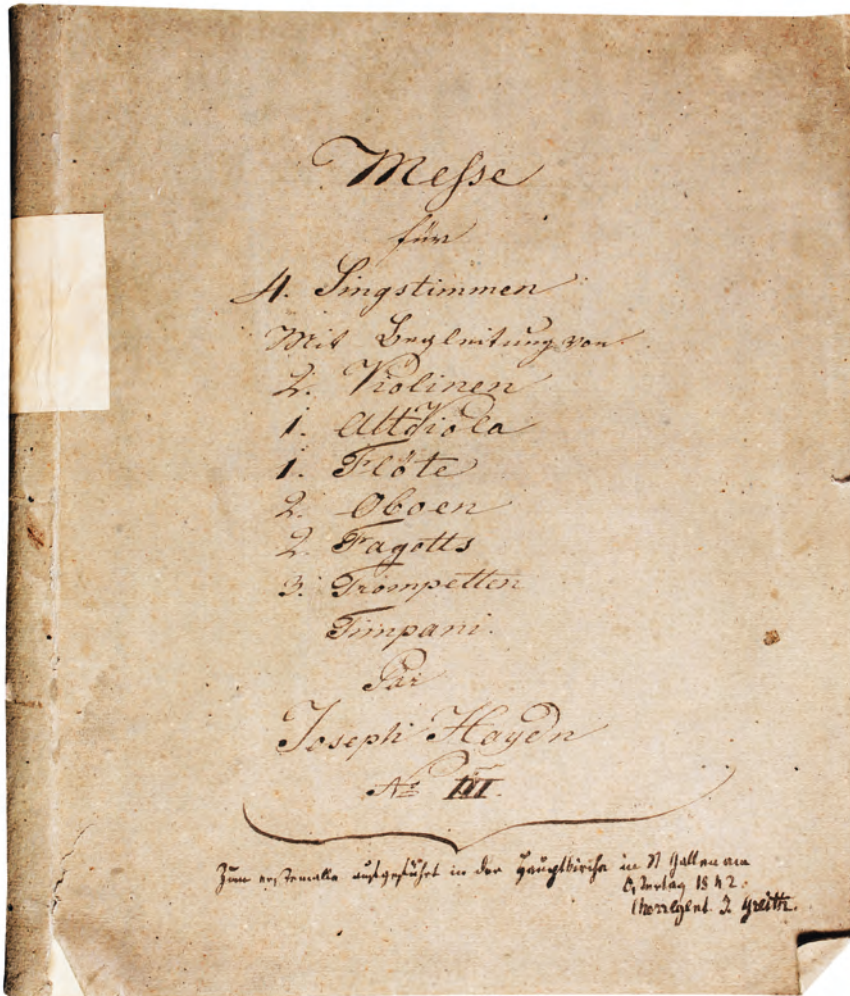 Messe
für
4. Singstimmen
Mit Begleitung von
2. Violinen
1. AltViola
1. Flöte
2. Oboen
2. Fagotts
3. Trompetten
Timpani.
Par
Joseph Haydn
No III
Zum erstenmalle aufgeführt in der Hauptkirche in St Gallen am
Ostertag 1842.
Chorregent. J. Greith.